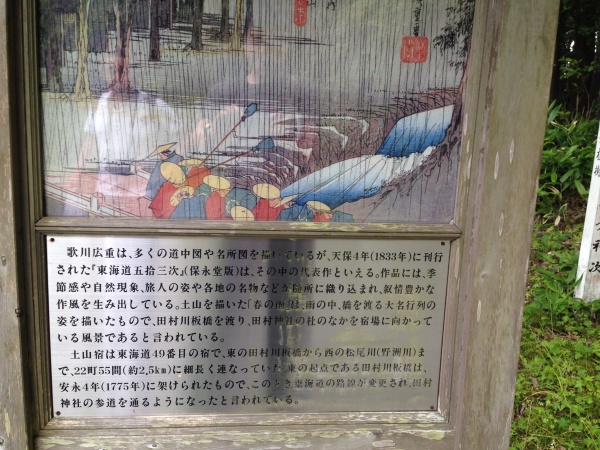 歌川広重は、多くの道中図や名所図を描いているが、天保4年(1833年)に刊行
された『東海道五拾三次』(保永堂版)は、その中の代表作といえる。作品には、季
節感や自然現象、旅人の姿や各地の名物などが随所に織り込まれ、叙情豊かな
作風を生み出している。土山を描いた「春の雨」は、雨の中、橋を渡る大名行列の
姿を描いたもので、田村川板橋を渡り、田村神社の杜のなかを宿場に向かって
いる風景であると言われている。
土山宿は東海道49番目の宿で、東の田村川板橋から西の松尾川(野洲川)ま
で、22町55間(約2.5km)に細長く連なっていた。東の起点である田村川板橋は、
安永4年(1775年)に架けられたもので、このとき東海道の路線が変更され、田村
神社の参道を通るようになったと言われている。